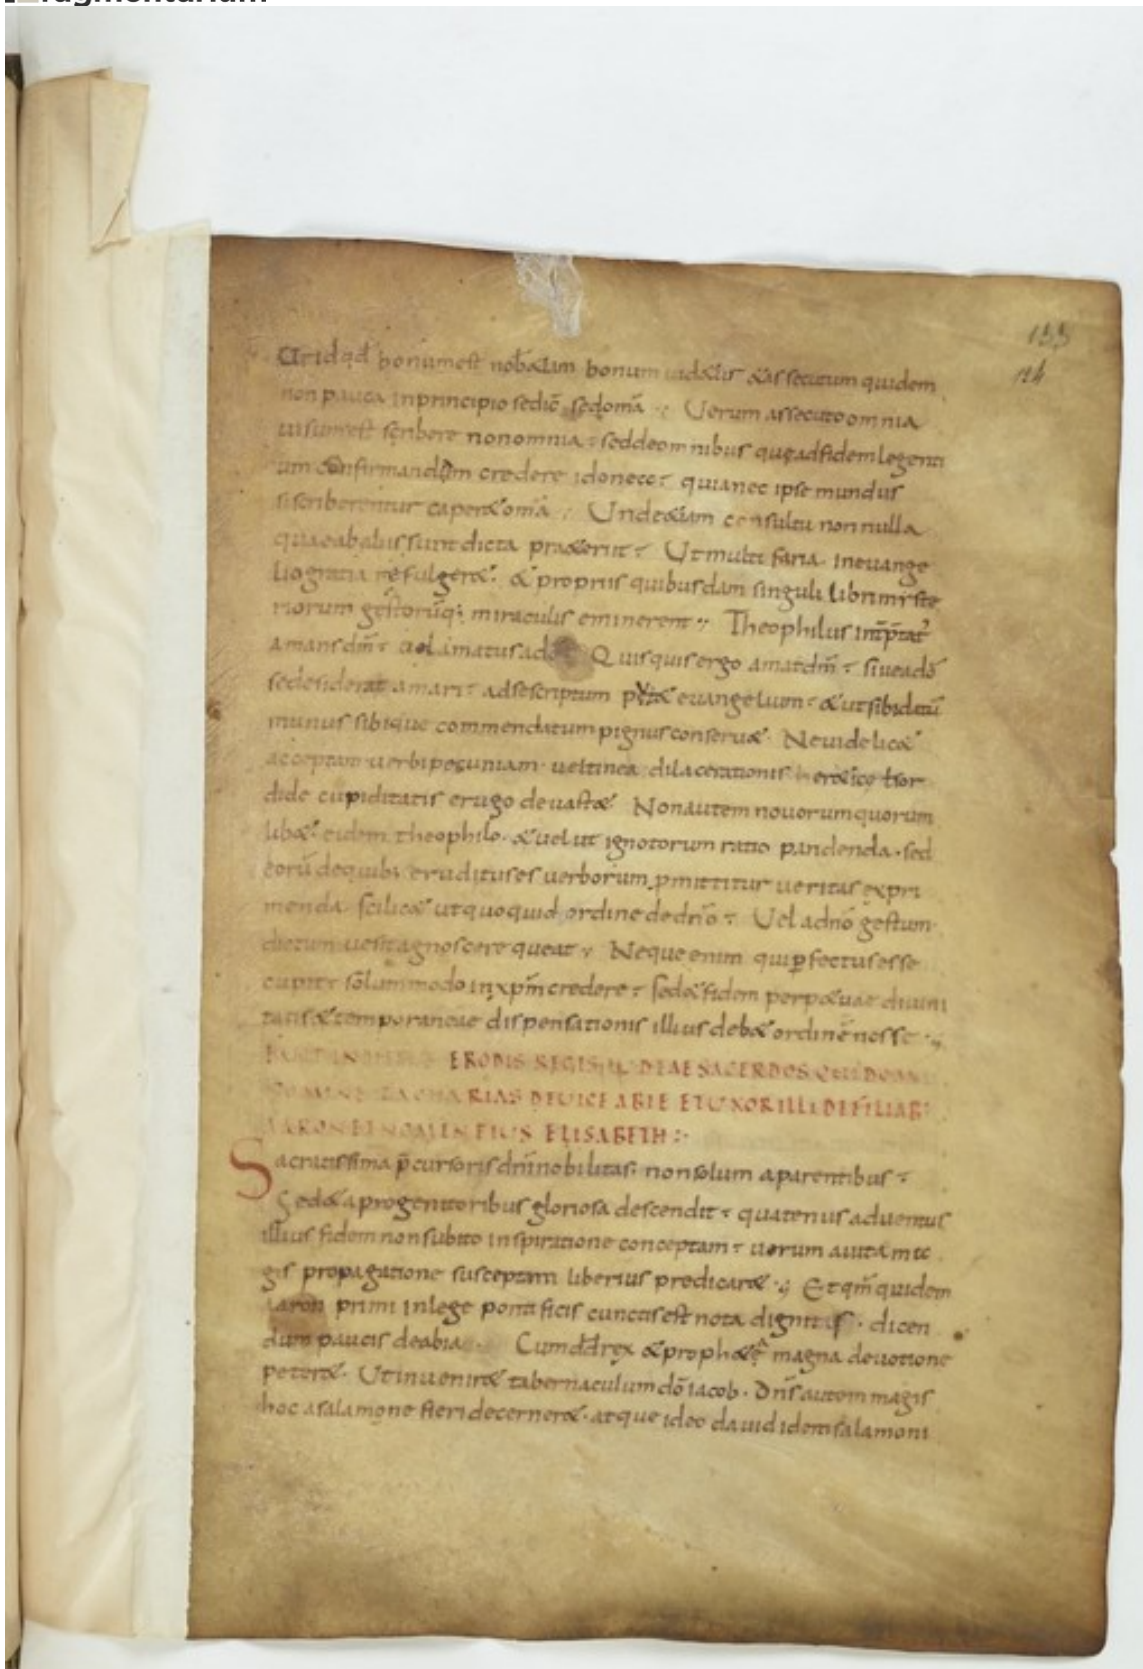 ragmentarium
133
124
Utid qd bonum est nob etiam bonum videtis et assecutum quidem
non pauca inprincipio sedic̄ sedomā Uerum assecuto omnia
uisum est scribere nonomnia seddeomnibus queadfidemlegenti
um confirmandam credere idonee quianec ipse mundus
siscriberentur caperet omīa Undeetiam consultu non nulla
quaeabaliis sunt dicta praeterut Ut multi faria inevange
lio gratia refulgeret & propriis quibusdam singuli libri miste
riorum gestorūq; miraculis eminerent Theophilus intp̄tat̄
amans dm̄ amatus ado Quisquis ergo amat dm̄ siue adō
sedesiderat amari adsescriptum putet evangelium & ut sibi datū
munus sibique commendatum pignus conseruet Neuidelicet
acceptam uerbi pecuniam uel tinea dilacerationis
dide cupiditatis erugo deuastet Nonautem nouorum quorum
libet eidem theophilo et uelut ignotorum ratio pandenda sed
eorū dequib; erudituses uerborum pmittitur ueritas expri
menda scilicet utquoquid ordine dedn̄o Uel adn̄o gestum
dictum uesit agnoscere queat Neque enim qui pfectus esse
cupit solummodo inxpm̄ credere sed& fidem perpetuae diuini
tatis & temporaneae dispensationis illius deb& ordinē nosse
ERODIS REGIS IUDEAE SACERDOS QUIDDAM
NOMINE ZACHARIAS DEVICE ABIE ET UXOR ILLI DE FILIAB
AARON ET NOMEN EIUS ELISABETH
Sacratissima p̄cursoris dn̄i nobilitas nonsolum aparentibus
Sed& aprogenitoribus gloriosa descendit quatenus aduentus
illius fidem non subito inspiratione conceptam uerum auitam le
gis propagatione susceptam liberius predicaret Et qm̄ quidem
aaron primi inlege pontificis cunctis est nota dignitas dicen
dum paucis deabia Cum dd̄ rex et prophete magna deuotione
peteret Ut inueniret tabernaculum dō iacob Dn̄s autem magis
hoc asalamone fieri decerneret atque ideo dauid idem salamoni